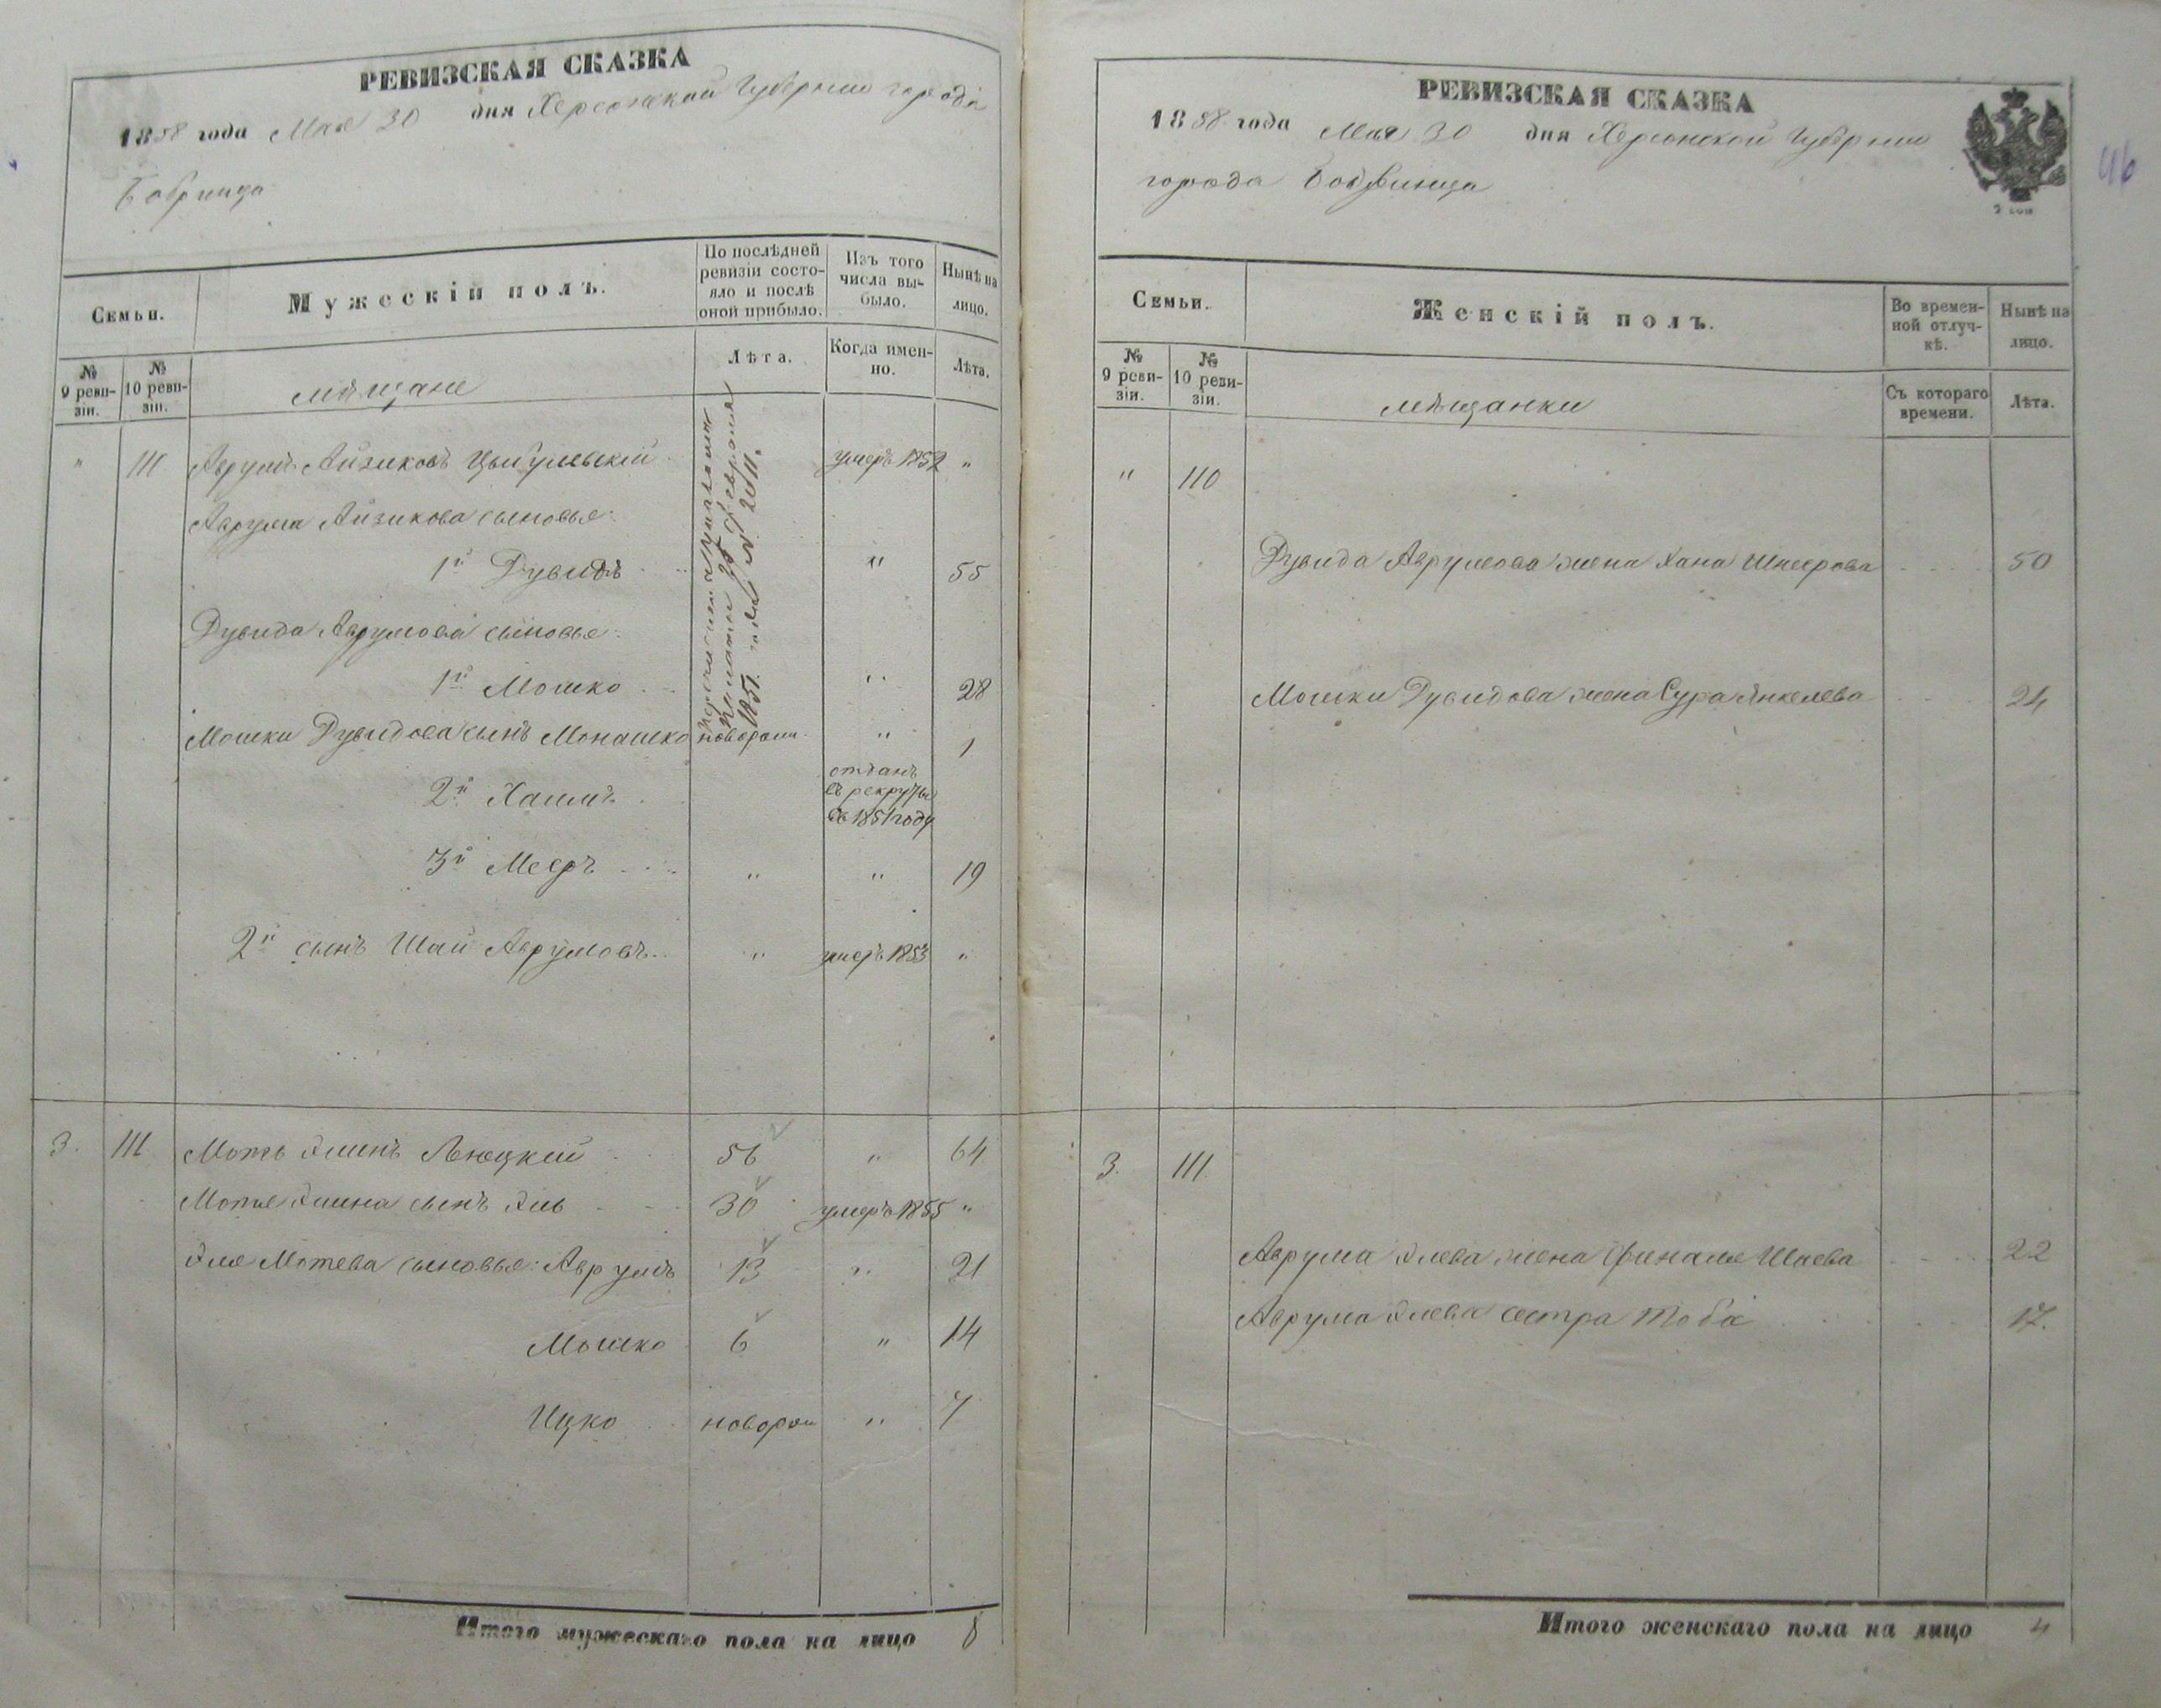 РЕВИЗСКАЯ СКАЗКА
1858 года Мая 30 дня Херсонской Губернии города
Бобринца
Семьи.
Мужескій полъ.
По послѣдней ревизіи состо-
яло и послѣ оной прибыло.
Изъ того числа вы-
было.
Нынѣ на лицо.
№ 9 реви-
зіи.
№ 10 реви-
зіи.
мѣщане
Лѣта.
Когда имен-
но.
Лѣта.
" 111 Аврумъ Айзиковъ Цыбулевскій умеръ 1852 "
1851 года № 2011.
Аврума Айзикова сыновья:
1й Дувидъ " 55
Дувида Аврумова сыновья:
1й Мошко " 28
Мошки Дувидова сынъ Монашко новорож. " 1
2й Хаимъ отданъ
въ рекруты
въ 1851 году
3й Мееръ " " 19
2й сынъ Шай Аврумовъ " умеръ 1853 "
3. 111 Моть Элинъ Люцкій 56 " 64
Мотя Элина сынъ Эль 30 умеръ 1855 "
Эля Мотева сыновья: Аврумъ 13 " 21
Мошко 6 " 14
Ицко новорож " 7
Итого мужескаго пола на лицо 8
РЕВИЗСКАЯ СКАЗКА
1858 года Мая 30 дня Херсонской Губернии
города Бобринца
46
Семьи.
Женскій полъ.
Во времен-
ной отлуч-
кѣ.
Нынѣ на лицо.
№ 9 реви-
зіи.
№ 10 реви-
зіи.
мѣщанки
Съ котораго времени.
Лѣта.
" 110
Дувида Аврумова жена Хана Шнеерова 50
Мошки Дувидова жена Сура Янкелева 24
3. 111
Аврума Элева жена Шаева 22
Аврума Элева сестра Тоба 17.
Итого женскаго пола на лицо 4